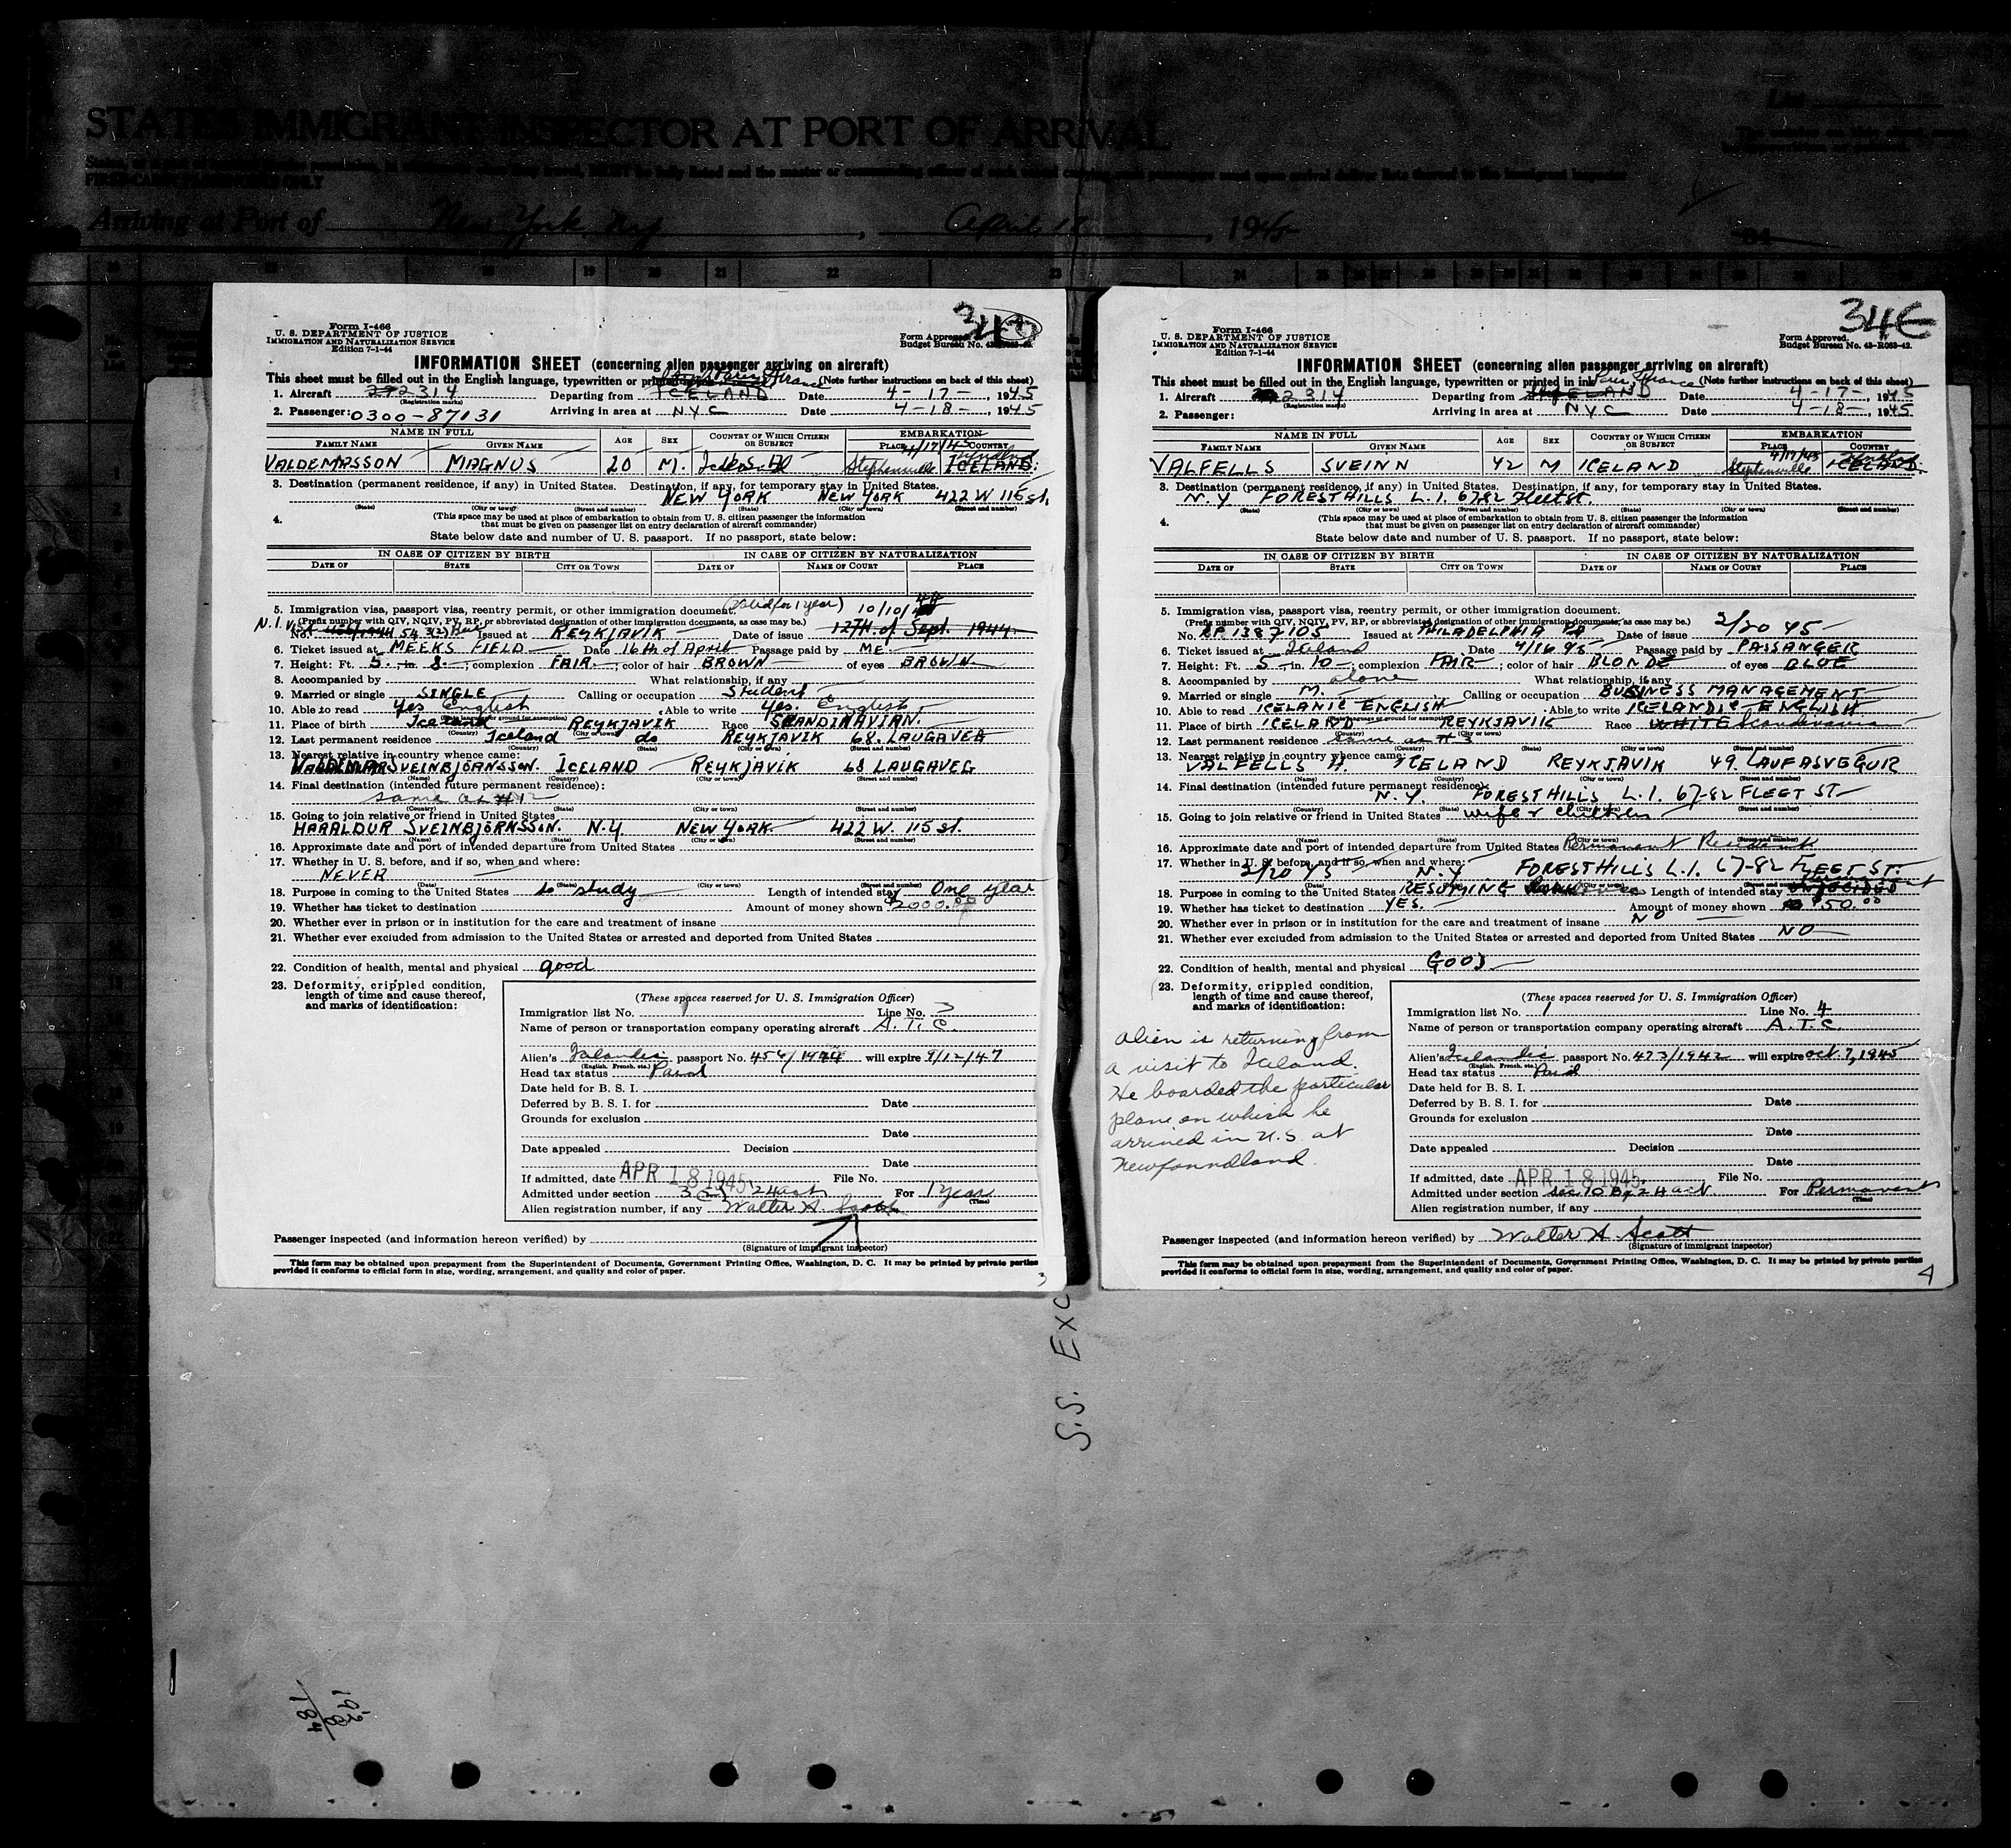 STATES IMMIGRANT INSPECTOR AT PORT OF ARRIVAL
Arriving at Port of New York, Ny, April 18, 1945
Form I-466
U. S. DEPARTMENT OF JUSTICE
IMMIGRATION AND NATURALIZATION SERVICE
Edition 7-1-44
Form Approved
Budget Bureau No.
INFORMATION SHEET (concerning alien passenger arriving on aircraft)
This sheet must be filled out in the English language, typewritten or printed (Note further instructions on back of this sheet)
1. Aircraft 2314 Departing from ICELAND Date 4-17-, 1945
(Registration marks)
2. Passenger: 0300-87131 Arriving in area at NYC Date 4-18-, 1945
NAME IN FULL AGE SEX COUNTRY OF WHICH CITIZEN OR SUBJECT EMBARKATION
FAMILY NAME GIVEN NAME PLACE COUNTRY
4/17/45
VALDEMARSSON MAGNUS 20 M. Stephenville ICELAND
3. Destination (permanent residence, if any) in United States. Destination, if any, for temporary stay in United States.
NEW YORK NEW YORK 422 W 115 st.
(State) (City or town) (Street and number) (State) (City or town) (Street and number)
4. (This space may be used at place of embarkation to obtain from U. S. citizen passenger the information
that must be given on passenger list on entry declaration of aircraft commander)
State below date and number of U. S. passport. If no passport, state below:
IN CASE OF CITIZEN BY BIRTH IN CASE OF CITIZEN BY NATURALIZATION
DATE OF STATE CITY OR TOWN DATE OF NAME OF COURT PLACE
5. Immigration visa, passport visa, reentry permit, or other immigration document. (Valid for 1 year) 10/10/44
(Prefix number with QIV, NQIV, PV, RP, or abbreviated designation of other immigration documents, as case may be.)
No. Issued at REYKJAVIK Date of issue 12TH of Sept. 1944
6. Ticket issued at MEEKS FIELD Date 16th of April Passage paid by ME
7. Height: Ft. 5 in. 8 ; complexion FAIR ; color of hair BROWN of eyes BROWN
8. Accompanied by What relationship, if any
9. Married or single SINGLE Calling or occupation Student
10. Able to read Yes English Able to write Yes. English
11. Place of birth Iceland REYKJAVIK Race SKANDINAVIAN.
12. Last permanent residence Iceland do REYKJAVIK 68. LAUGAVEG
(Country) (State) (City or town) (Street and number)
13. Nearest relative in country whence came:
VALDEMAR SVEINBJORNSSON. ICELAND REYKJAVIK 68 LAUGAVEG
(Name) (Country) (City or town) (Street and number)
14. Final destination (intended future permanent residence):
same as #12
(Country) (State) (City or town) (Street and number)
15. Going to join relative or friend in United States
HARALDUR SVEINBJORNSSON. N.Y NEW YORK 422 W. 115 st.
(Name) (State) (City or town) (Street and number)
16. Approximate date and port of intended departure from United States
17. Whether in U. S. before, and if so, when and where:
NEVER
(Date) (State) (City or town) (Street and number)
18. Purpose in coming to the United States to study Length of intended stay One year
19. Whether has ticket to destination Amount of money shown $2000.00
20. Whether ever in prison or in institution for the care and treatment of insane
21. Whether ever excluded from admission to the United States or arrested and deported from United States
22. Condition of health, mental and physical good
23. Deformity, crippled condition,
length of time and cause thereof,
and marks of identification:
(These spaces reserved for U. S. Immigration Officer)
Immigration list No. 1 Line No. 3
Name of person or transportation company operating aircraft A. T. C.
Alien's Icelandic passport No. will expire 9/12/47
(English, French, etc.)
Head tax status Paid
Date held for B. S. I.
Deferred by B. S. I. for Date
Grounds for exclusion
Date
Date appealed Decision
Date
If admitted, date APR 18 1945 File No.
Admitted under section 3(2) 24 act For 1 year
(Time)
Alien registration number, if any Walter A. Scott
Passenger inspected (and information hereon verified) by
(Signature of immigrant inspector)
This form may be obtained upon prepayment from the Superintendent of Documents, Government Printing Office, Washington, D. C. It may be printed by private parties
provided it conforms to official form in size, wording, arrangement, and quality and color of paper.
3
34E
Form I-466
U. S. DEPARTMENT OF JUSTICE
IMMIGRATION AND NATURALIZATION SERVICE
Edition 7-1-44
Form Approved.
Budget Bureau No. 43-R083-42.
INFORMATION SHEET (concerning alien passenger arriving on aircraft)
This sheet must be filled out in the English language, typewritten or printed in ink (Note further instructions on back of this sheet)
1. Aircraft 2314 Departing from ICELAND Date 4-17-, 1945
(Registration marks)
2. Passenger: Arriving in area at NYC Date 4-18-, 1945
NAME IN FULL AGE SEX COUNTRY OF WHICH CITIZEN OR SUBJECT EMBARKATION
FAMILY NAME GIVEN NAME PLACE COUNTRY
4/17/45
VALFELLS SVEINN 42 M ICELAND Stephenville ICELAND
3. Destination (permanent residence, if any) in United States. Destination, if any, for temporary stay in United States.
N.Y. FOREST HILLS L.I. 67-82 Fleet st.
(State) (City or town) (Street and number) (State) (City or town) (Street and number)
4. (This space may be used at place of embarkation to obtain from U. S. citizen passenger the information
that must be given on passenger list on entry declaration of aircraft commander)
State below date and number of U. S. passport. If no passport, state below:
IN CASE OF CITIZEN BY BIRTH IN CASE OF CITIZEN BY NATURALIZATION
DATE OF STATE CITY OR TOWN DATE OF NAME OF COURT PLACE
5. Immigration visa, passport visa, reentry permit, or other immigration document.
(Prefix number with QIV, NQIV, PV, RP, or abbreviated designation of other immigration documents, as case may be.)
No. RP 1387105 Issued at PHILADELPHIA PA Date of issue 2/20 45
6. Ticket issued at Iceland Date 4/16 45 Passage paid by PASSANGER
7. Height: Ft. 5 in. 10 ; complexion FAIR ; color of hair BLONDE of eyes BLUE
8. Accompanied by alone What relationship, if any
9. Married or single M. Calling or occupation BUSINESS MANAGEMENT
10. Able to read ICELANIC ENGLISH Able to write ICELANDIC ENGLISH
11. Place of birth ICELAND REYKJAVIK Race WHITE Scandinavian
12. Last permanent residence same as #3
(Country) (State) (City or town) (Street and number)
13. Nearest relative in country whence came:
VALFELLS A. ICELAND REYKJAVIK 49. LAUFASVEGUR
(Name) (Country) (City or town) (Street and number)
14. Final destination (intended future permanent residence):
N.Y. FOREST HILLS L.I. 67-82 FLEET ST
(Country) (State) (City or town) (Street and number)
15. Going to join relative or friend in United States wife & children
(Name) (State) (City or town) (Street and number)
16. Approximate date and port of intended departure from United States Permanent Residence
17. Whether in U. S. before, and if so, when and where:
2/20 45 N.Y FOREST HILLS L.I. 67-82 FLEET ST.
18. Purpose in coming to the United States RESUMING Length of intended stay
19. Whether has ticket to destination YES. Amount of money shown $50.00
20. Whether ever in prison or in institution for the care and treatment of insane NO
21. Whether ever excluded from admission to the United States or arrested and deported from United States NO
22. Condition of health, mental and physical GOOD
23. Deformity, crippled condition,
length of time and cause thereof,
and marks of identification:
Alien is returning from
a visit to Iceland.
He boarded the particular
plane on which he
arrived in U.S. at
Newfoundland.
(These spaces reserved for U. S. Immigration Officer)
Immigration list No. 1 Line No. 4
Name of person or transportation company operating aircraft A.T.C.
Alien's Icelandic passport No. 473/1942 will expire Oct. 7, 1945
(English, French, etc.)
Head tax status Paid
Date held for B. S. I.
Deferred by B. S. I. for Date
Grounds for exclusion
Date
Date appealed Decision
Date
If admitted, date APR 18 1945 File No.
Admitted under section sec 10 of 24 act. For Permanent
(Time)
Alien registration number, if any
Passenger inspected (and information hereon verified) by Walter A Scott
(Signature of immigrant inspector)
This form may be obtained upon prepayment from the Superintendent of Documents, Government Printing Office, Washington, D. C. It may be printed by private parties
provided it conforms to official form in size, wording, arrangement, and quality and color of paper.
4
S.S. Exc